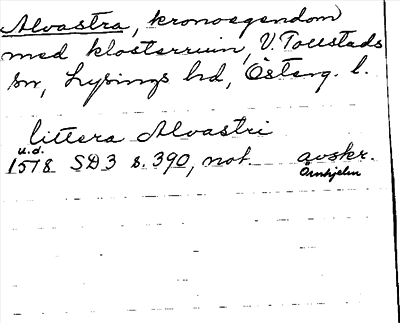 Alvastra, kronoegendom
med klosterruin, V. Tollstads
sn, Lysings hd, Österg. l.
littera Alvastri
u.d.
1578 SD3 s. 390, not. avskr.
Örnhjelm